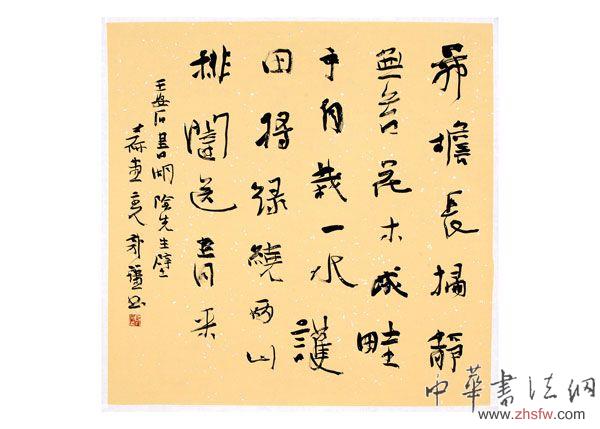 茅檐長掃靜
無苔花木成畦
手自栽一水護
田將綠繞兩山
排闥送青來
王安石書湖陰先生壁
書
中華書法網
www.zhsfw.com